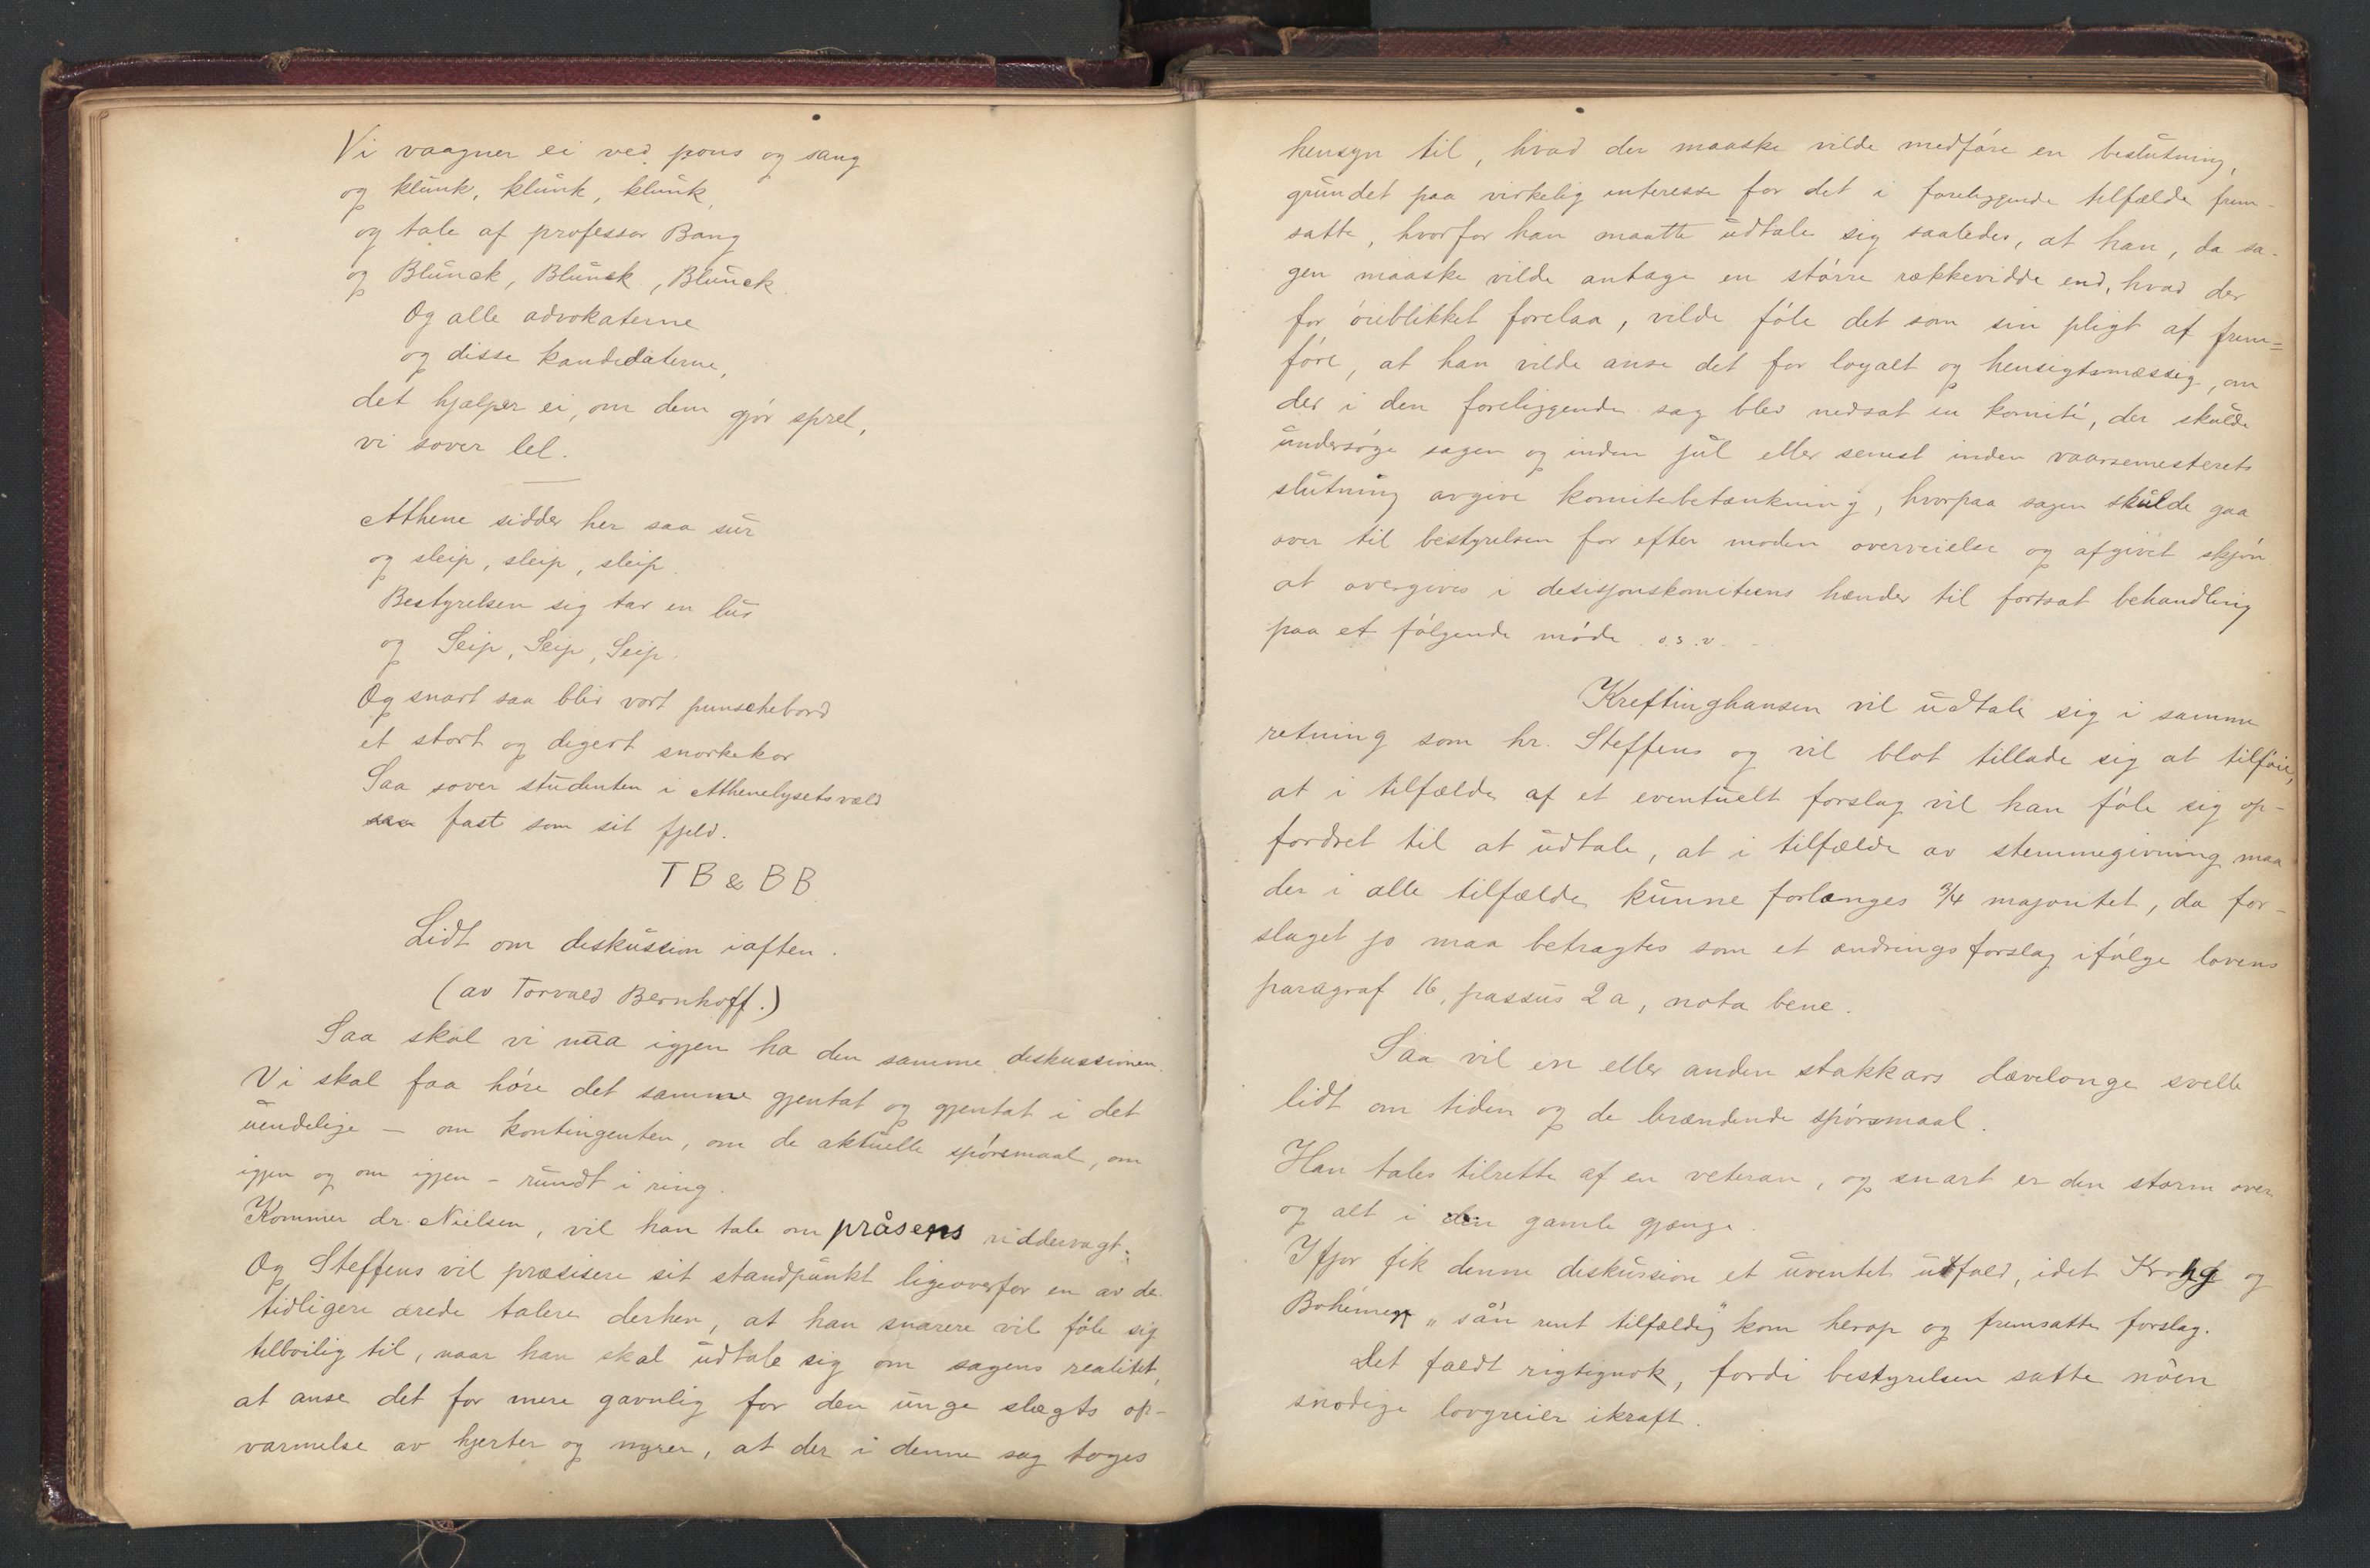 Vi vaagner ei ved pons og sang
og klunk, klunk, klunk,
og tale af professor Bang
og Blunck, Blunck, Blunck.
Og alle advokaterne
og disse kandidaterne,
det hjælper ei, om dem gjör sprel,
vi sover lel.
Athene sidder her saa sur
og sleip, sleip, sleip.
Bestyrelsen sig tar en lur
og Seip, Seip, Seip.
Og snart saa blir vort punschebord
et stort og digert snorkekor
Saa sover studenten i Athenelysets væld
saa fast som sit fjeld.
TB & BB
Lidt om diskussion iaften.
(av Torvald Bernhoff.)
Saa skal vi naa igjen ha den samme diskussionen.
Vi skal faa höre det samme gjentat og gjentat i det
uendelige – om kontingenten, om de aktuelle spörsmaal, om
igjen og om igjen – rundt i ring.
Kommer dr. Nielsen, vil han tale om pråsens riddervagt.
Og Steffens vil præsisere sit standpunkt ligeoverfor en av de
tidligere ærede talere derhen, at han snarere vil föle sig
tilboilig til, naar han skal udtale sig om sagens realitet,
at anse det for mere gavnlig for den unge slægts op-
varmelse av hjerter og nyrer, at der i denne sag toges
hensyn til, hvad der maaske vilde medföre en beslutning,
grundet paa virkelig interesse for det i foreliggende tilfælde frem-
satte, hvorfor han maatte udtale sig saaledes, at han, da sa-
gen maaske vilde antage en större rækkevidde end, hvad der
for öieblikket forelaa, vilde föle det som sin pligt af frem=
före, at han vilde anse det for loyalt og hensigtsmæssig, om
der i den foreliggende sag blev nedsat en komité, der skulde
undersöge sagen og inden jul eller senest inden vaarsemesterets
slutning avgive komitebetænkning, hvorpaa sagen skulde gaa
over til bestyrelsen for efter moden overveielse og afgivet skjön
at overgives i desisjonskomiteens hænder til fortsat behandling
paa et fölgende möde o.s.v.
Kreftinghansen vil udtale sig i samme
retning som hr. Steffens og vil blot tillade sig at tilföie,
at i tilfælde af et eventuelt forslag vil han föle sig op-
fordret til at udtale, at i tilfælde av stemmegivning maa
der i alle tilfælde kunne forlanges 3/4 majoritet, da for-
slaget jo maa betragtes som et ændringsforslag ifölge lovens
paragraf 16, passus 2 a, nota bene.
Saa vil en eller anden stakkars dævelonge svelle
lidt om tiden og de brændende spörsmaal.
Han tales tilrette af en veteran, og snart er den storm over
og alt i den gamle gjænge.
Ifjor fik denne diskussion et uventet utfald, idet Krohg og
Bohémen „sån rent tilfældig" kom herop og fremsatte forslag.
Det faldt rigtignok, fordi bestyrelsen satte nöen
snodige lovgreier ikraft.